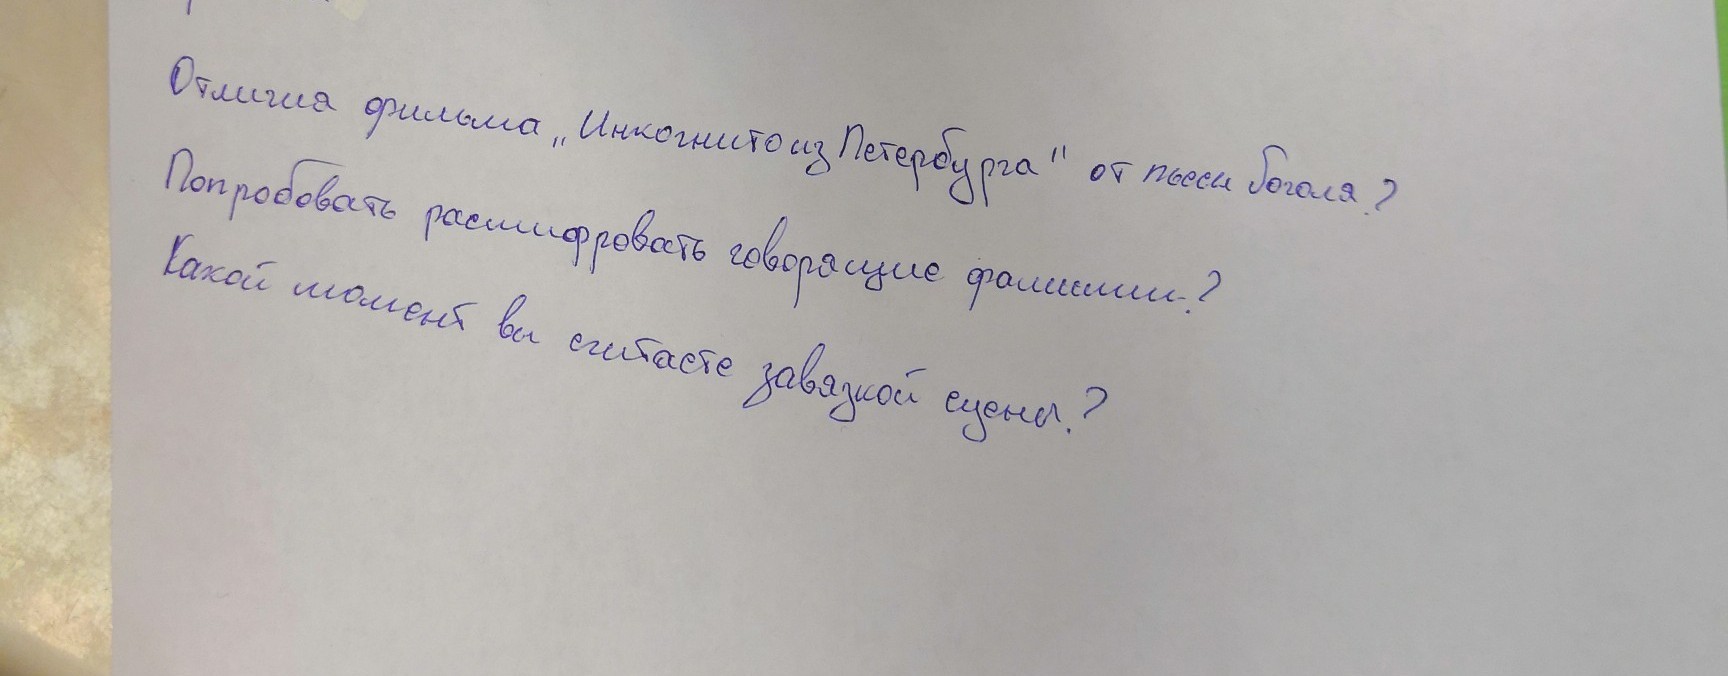 Отличия фильма „Инкогнито из Петербурга" от пьесы Гоголя?
Попробовать расшифровать говорящие фамилии?
Какой момент вы считаете завязкой сцены?